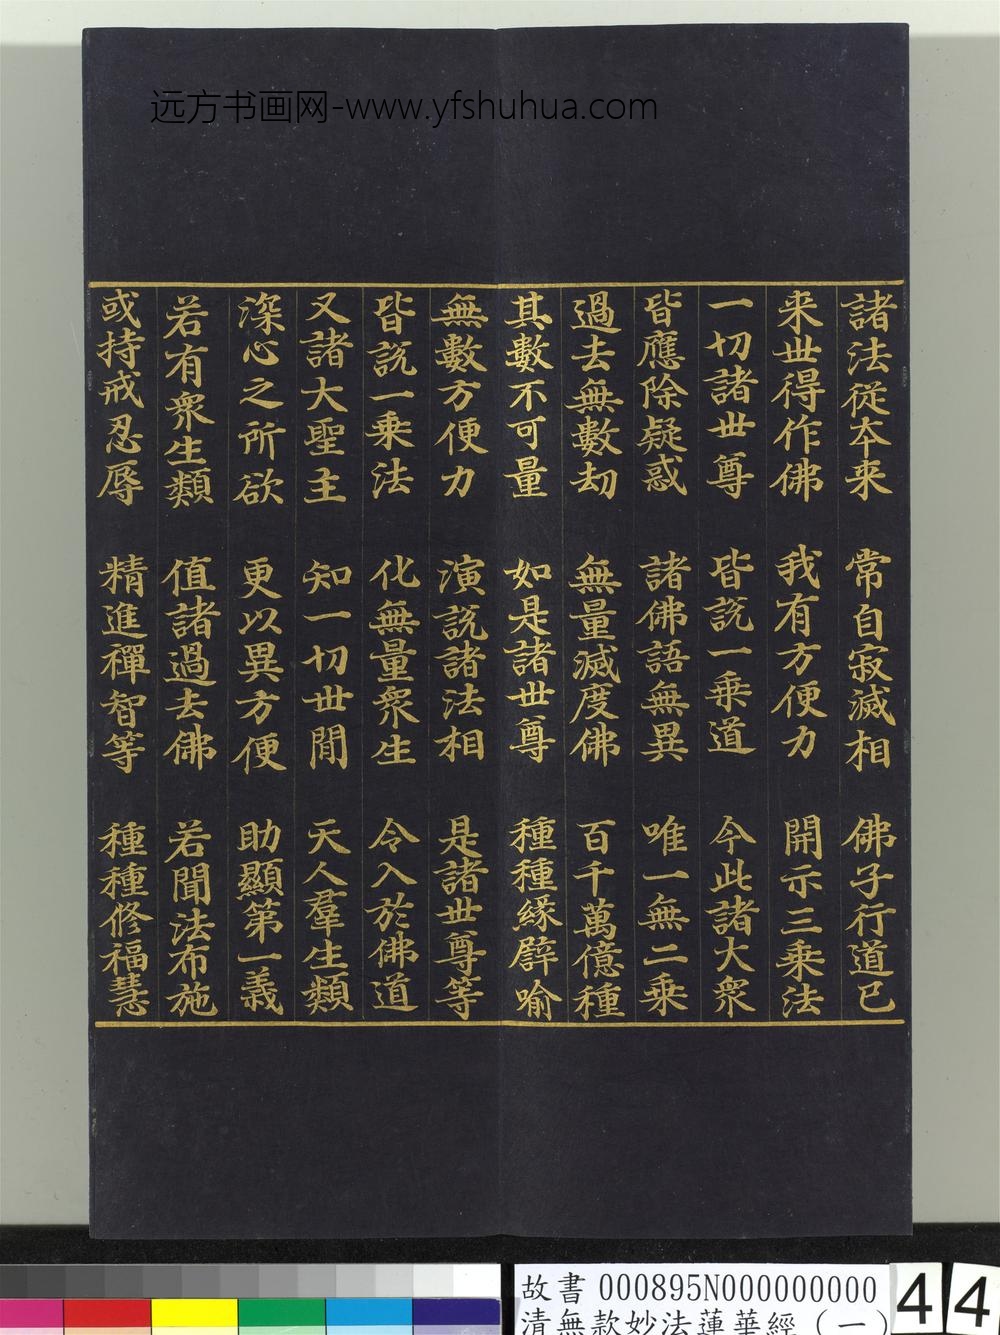 远方书画网-www.yfshuhua.com
諸法從夲来 常自寂滅相 佛子行道已
来世得作佛 我有方便力 開示三乗法
一切諸世尊 皆説一乗道 今此諸大衆
皆應除疑惑 諸佛語無異 唯一無二乗
過去無數劫 無量滅度佛 百千萬億種
其數不可量 如是諸世尊 種種緣譬喻
無數方便力 演説諸法相 是諸世尊等
皆説一乗法 化無量衆生 令入於佛道
又諸大聖主 知一切世間 天人羣生類
深心之所欲 更以異方便 助顯第一義
若有衆生類 值諸過去佛 若聞法布施
或持戒忍辱 精進禪智等 種種修福慧
故書 000895N000000000
清無款妙法蓮華經（一）
44